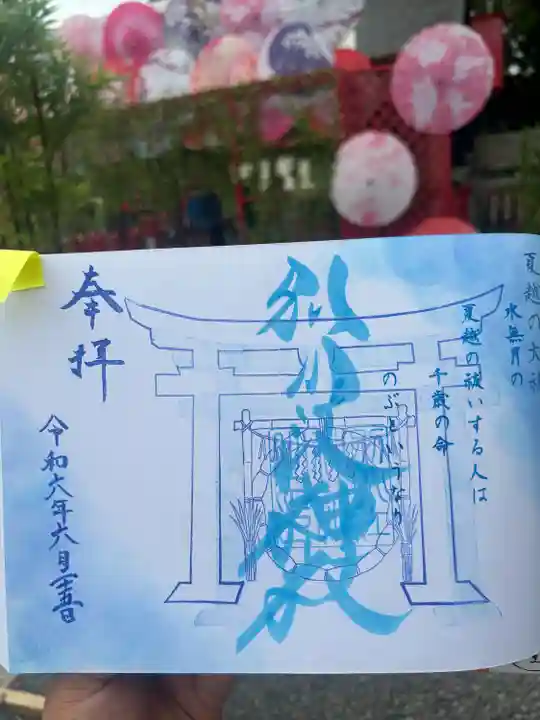 夏越の大祓
水無月の
夏越の祓いする人は
千歳の命
のぶというなり
別小江神社
奉拝
令和六年六月吉日